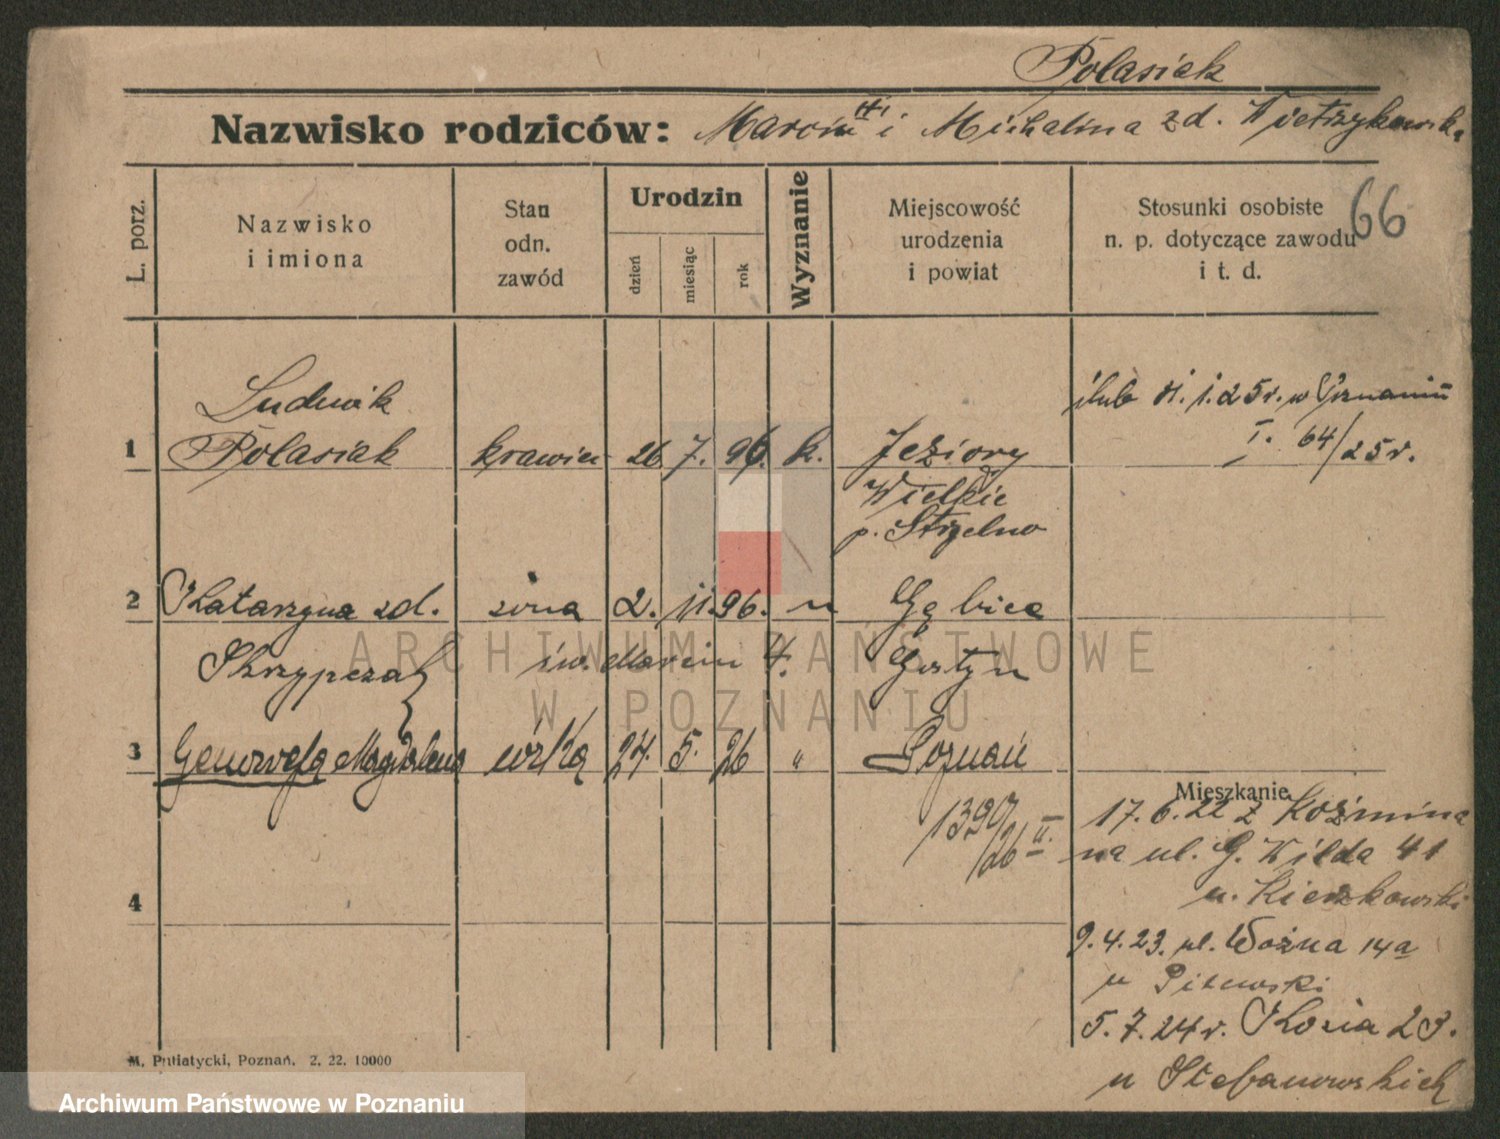 Polasiak
Nazwisko rodziców: Marcin i Michalina zd. Wietrzykowska
66
L. porz.
Nazwisko
i imiona
Stan
odn.
zawód
Urodzin
dzień
miesiąc
rok
Wyznanie
Miejscowość
urodzenia
i powiat
Stosunki osobiste
n. p. dotyczące zawodu
i t. d.
1 Ludwik
Polasiak krawiec 26 7. 96. k. Jeziory
Wielkie
p. Strzelno
ślub 1.25r. w Poznaniu
I. 64/25r.
2 Katarzyna zd. żona 2. 11. 96. " Gębice
Skrzypczak św. Marcin 4. Gostyń
3 Genowefa Magdalena córka 27. 5. 26 " Poznań
1390/26 II.
4
Mieszkanie
17.6.22 z Koźmina
na ul. G. Wilda 41
u. Kierzkowski
9.4.23. ul. Woźna 14a
u
5.7.24r. Kozia 23.
u Stefanowskich
M. Putiatycki, Poznań. 2. 22. 10000
ARCHIWUM PAŃSTWOWE
W POZNANIU
Archiwum Państwowe w Poznaniu